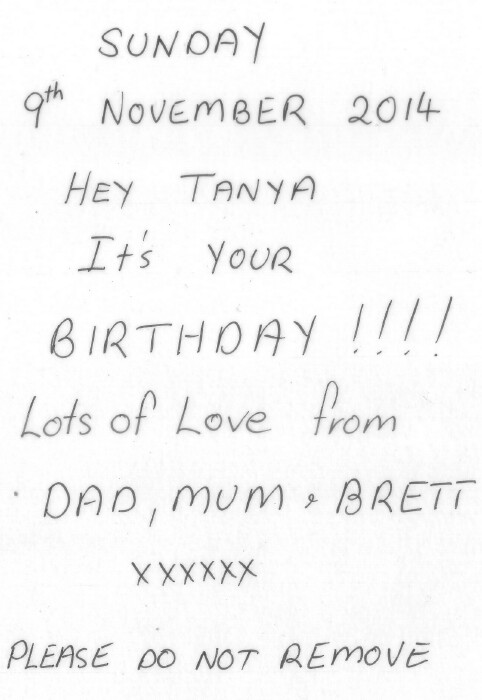 SUNDAY
9th NOVEMBER 2014
HEY TANYA
It's YOUR
BIRTHDAY !!!!
Lots of Love from
DAD, MUM & BRETT
xxxxxx
PLEASE DO NOT REMOVE